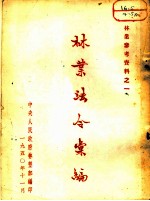 林業參考資料之一
林業法令彙編
中央人民政府林墾部編印
一九五〇年十一月